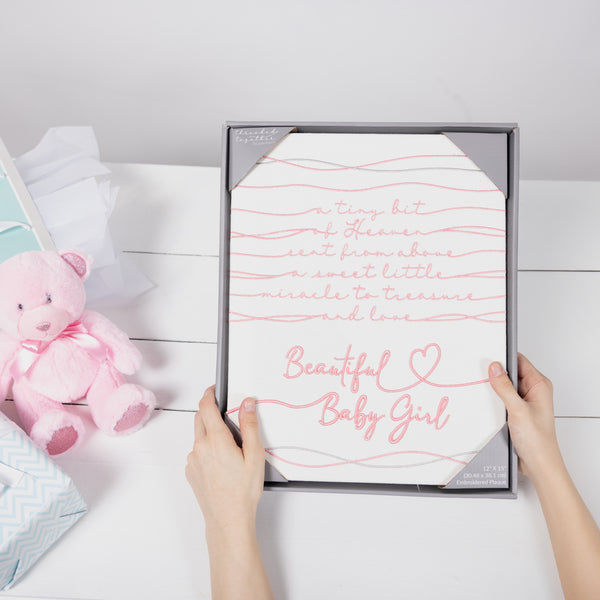 threaded
together
a tiny bit
of Heaven
sent from above
a sweet little
miracle to treasure
and love
Beautiful
Baby Girl
12" X 15"
(30.48 x 38.1 cm)
Embroidered Plaque